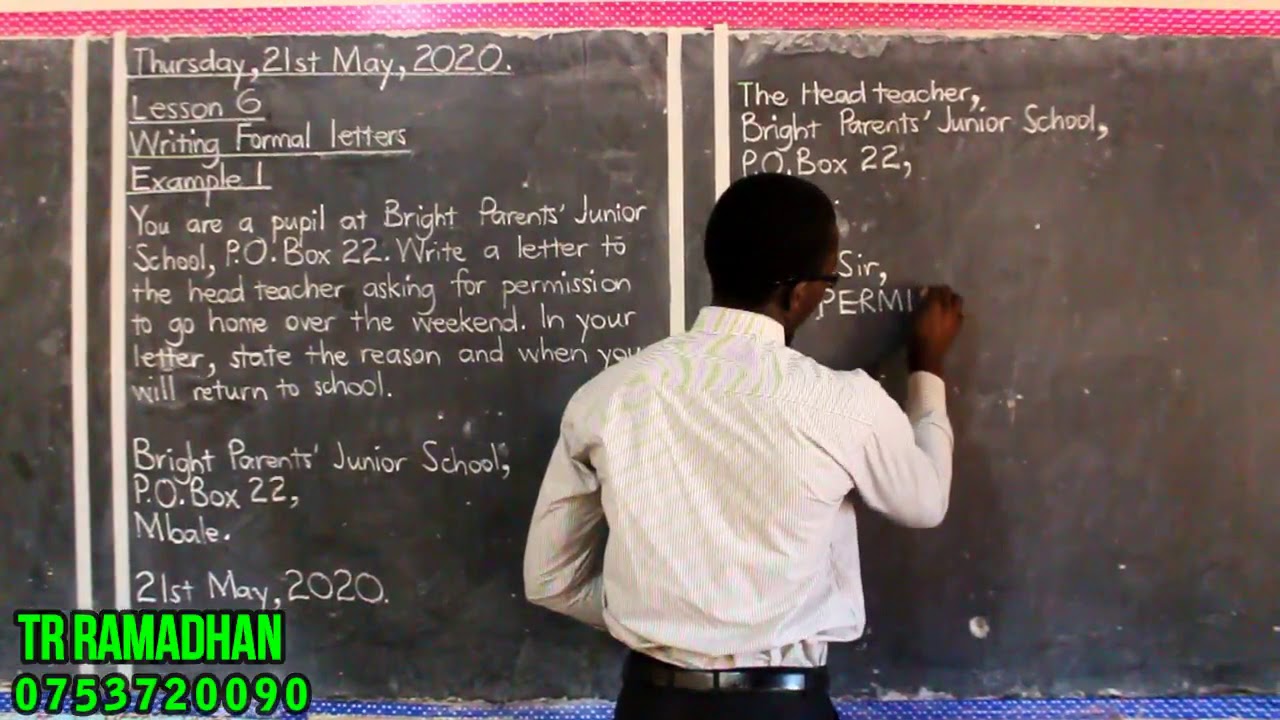 Thursday, 21st May, 2020.
Lesson 6
Writing Formal letters
Example 1
You are a pupil at Bright Parents' Junior
School, P.O. Box 22. Write a letter to
the head teacher asking for permission
to go home over the weekend. In your
letter, state the reason and when you
will return to school.
Bright Parents' Junior School,
P.O. Box 22,
Mbale.
21st May, 2020.
The Head teacher,
Bright Parents' Junior School,
P.O. Box 22,
Sir,
PERMI
TR RAMADHAN
0753720090